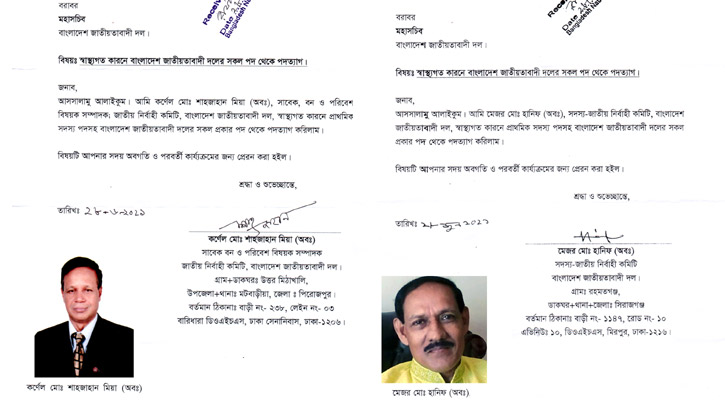 বরাবর
মহাসচিব
বাংলাদেশ জাতীয়তাবাদী দল।
বিষয়ঃ স্বাস্থ্যগত কারনে বাংলাদেশ জাতীয়তাবাদী দলের সকল পদ থেকে পদত্যাগ।
জনাব,
আসসালামু আলাইকুম। আমি কর্ণেল মোঃ শাহজাহান মিয়া (অবঃ), সাবেক, বন ও পরিবেশ
বিষয়ক সম্পাদক, জাতীয় নির্বাহী কমিটি, বাংলাদেশ জাতীয়তাবাদী দল, স্বাস্থ্যগত কারনে প্রাথমিক
সদস্য পদসহ বাংলাদেশ জাতীয়তাবাদী দলের সকল প্রকার পদ থেকে পদত্যাগ করিলাম।
বিষয়টি আপনার সদয় অবগতি ও পরবর্তী কার্যক্রমের জন্য প্রেরন করা হইল।
শ্রদ্ধা ও শুভেচ্ছান্তে,
তারিখঃ ২৮-৬-২০২১
কর্ণেল মোঃ শাহজাহান মিয়া (অবঃ)
সাবেক বন ও পরিবেশ বিষয়ক সম্পাদক
জাতীয় নির্বাহী কমিটি, বাংলাদেশ জাতীয়তাবাদী দল।
গ্রাম+ডাকঘরঃ উত্তর মিঠাখালি,
উপজেলা+থানাঃ মটবাড়ীয়া, জেলা ঃ পিরোজপুর।
বর্তমান ঠিকানাঃ বাড়ী নং- ২৩৮, লেইন নং- ০৩
বারিধারা ডিওএইচএস, ঢাকা সেনানিবাস, ঢাকা-১২০৬।
কর্ণেল মোঃ শাহজাহান মিয়া (অবঃ)
Date
বরাবর
মহাসচিব
বাংলাদেশ জাতীয়তাবাদী দল।
বিষয়ঃ স্বাস্থ্যগত কারনে বাংলাদেশ জাতীয়তাবাদী দলের সকল পদ থেকে পদত্যাগ।
জনাব,
আসসালামু আলাইকুম। আমি মেজর মোঃ হানিফ (অবঃ), সদস্য-জাতীয় নির্বাহী কমিটি, বাংলাদেশ
জাতীয়তাবাদী দল, স্বাস্থ্যগত কারনে প্রাথমিক সদস্য পদসহ বাংলাদেশ জাতীয়তাবাদী দলের সকল
প্রকার পদ থেকে পদত্যাগ করিলাম।
বিষয়টি আপনার সদয় অবগতি ও পরবর্তী কার্যক্রমের জন্য প্রেরন করা হইল।
শ্রদ্ধা ও শুভেচ্ছান্তে,
তারিখঃ
মেজর মোঃ হানিফ (অবঃ)
সদস্য-জাতীয় নির্বাহী কমিটি
বাংলাদেশ জাতীয়তাবাদী দল।
গ্রামঃ রহমতগঞ্জ,
ডাকঘর+থানা+জেলাঃ সিরাজগঞ্জ
বর্তমান ঠিকানাঃ বাড়ী নং- ১১৪৭, রোড নং- ১০
এভিনিউঃ ১০, ডিওএইচএস, মিরপুর, ঢাকা-১২১৬।
মেজর মোঃ হানিফ (অবঃ)
Date